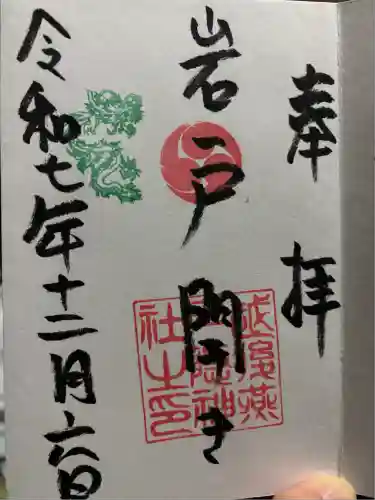 奉拝
岩戸開き
令和七年十二月六日